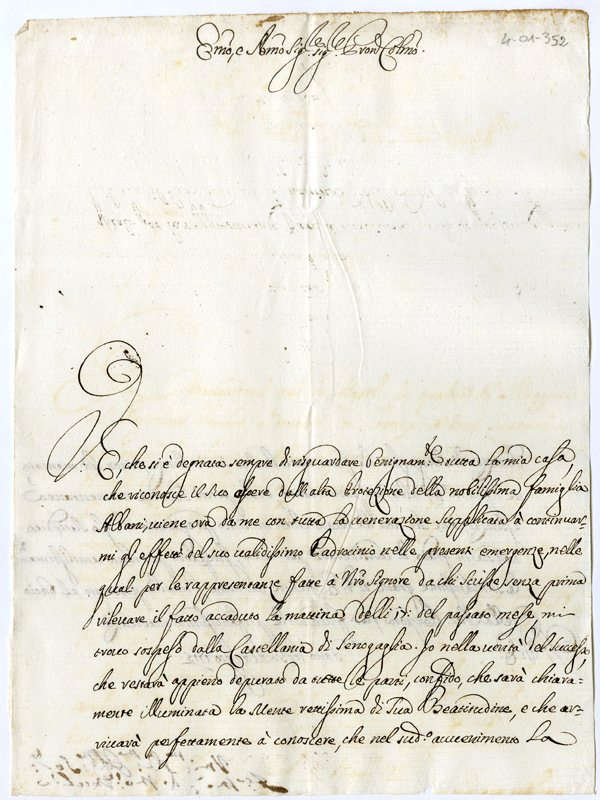 4-01-352
Emo, e Rmo Sig.re Sig.re Pron Colmo.
V: E, che si è degnata sempre di risguardare benignam.te tutta la mia casa,
che riconosce il suo essere dall'alta Protezione della nobilissima famiglia
Albani, viene ora da me con tutta la venerazione supplicata à continuar=
mi gl'effetti del suo validissimo Padrocinio nelle presenti emergenze, nelle
quali per le rappresentanze fatte à Nrò Signore da chi scrisse senza prima
rilevare il fatto accaduto la mattina delli 17: del passato mese, mi
trovo sospeso dalla Castellania di Senogaglia. Io nella verità del successo,
che restarà appieno depurato da tutte le parti, confido, che sarà chiara=
mente illuminata la Mente rettissima di Sua Beatitudine, e che ar=
rivarà perfettamente à conoscere, che nel sud.o avvenimento La